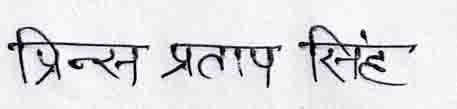 प्रिन्स प्रताप सिंह